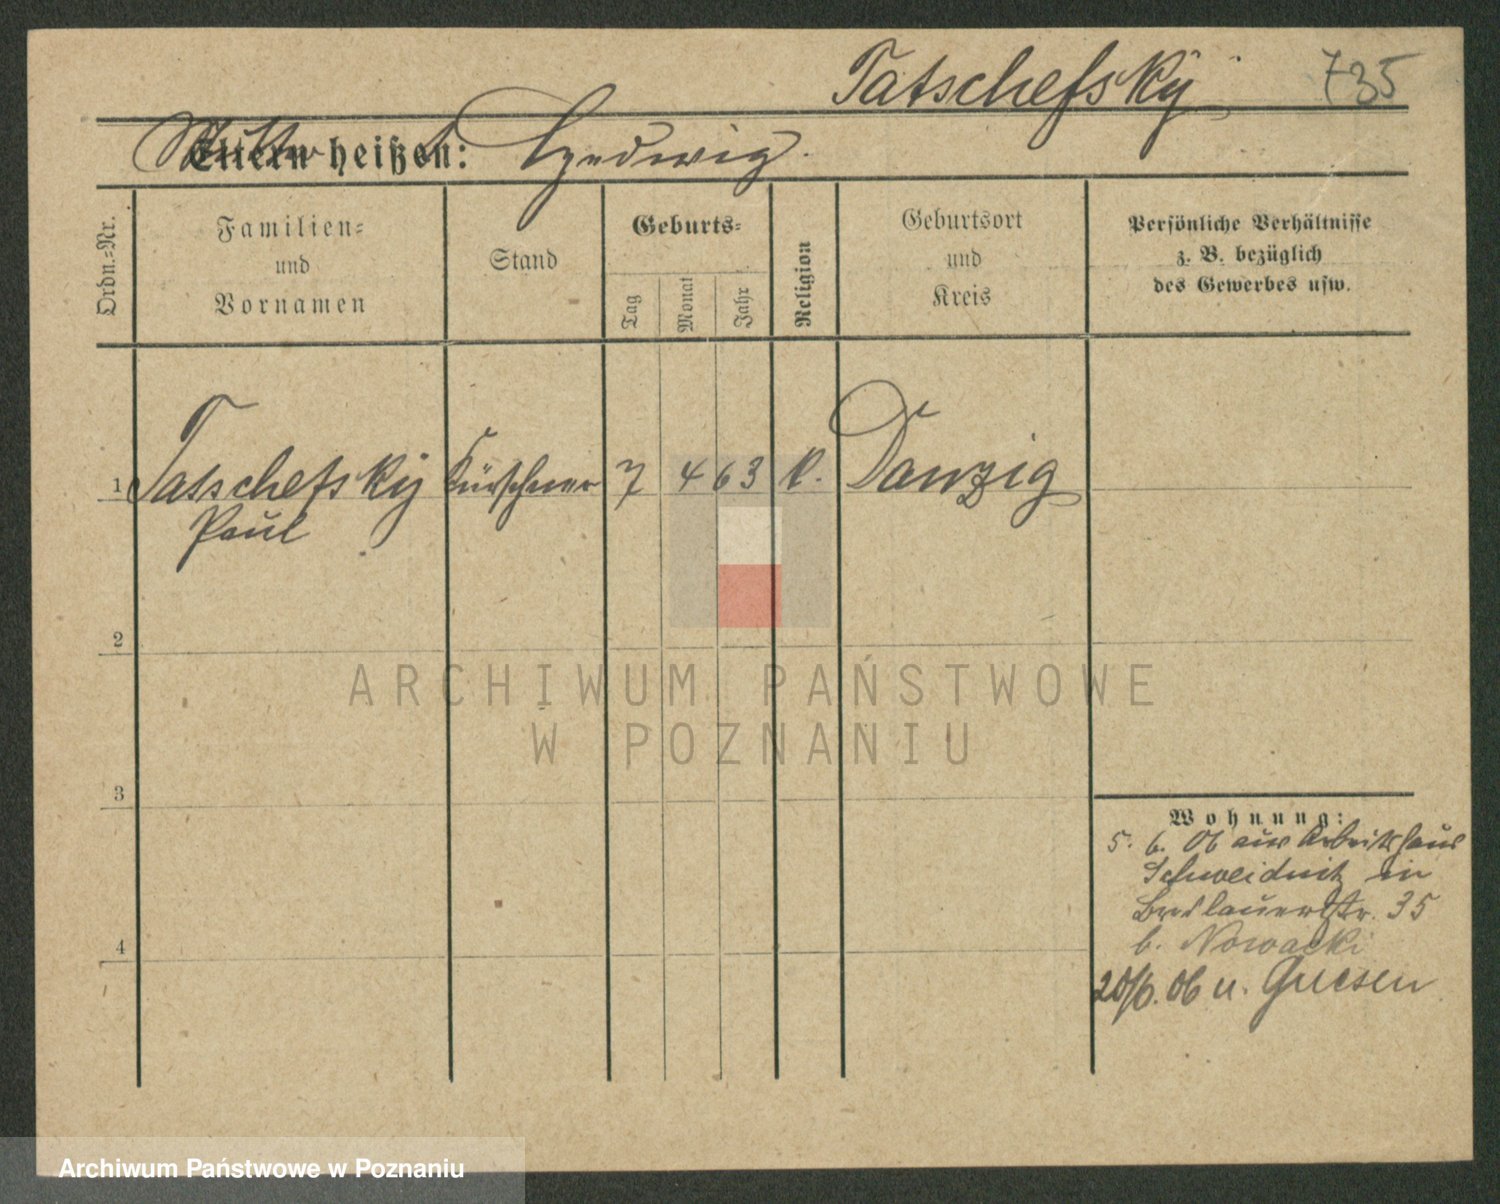 Tatschefsky 735
Eltern heißen: Hedwig.
Ordn.-Nr.
Familien-
und
Vornamen
Stand
Geburts-
Tag
Monat
Jahr
Religion
Geburtsort
und
Kreis
Persönliche Verhältnisse
z. B. bezüglich
des Gewerbes usw.
1 Tatschefsky Kürschner 7 4 63 k. Danzig
Paul
2
ARCHIWUM PAŃSTWOWE
W POZNANIU
3
4
Wohnung:
5. 6. 06 aus Arbeitshaus
Schweidnitz in
Breslauerstr. 35
b. Nowacki
20/6. 06 n. Gnesen
Archiwum Państwowe w Poznaniu